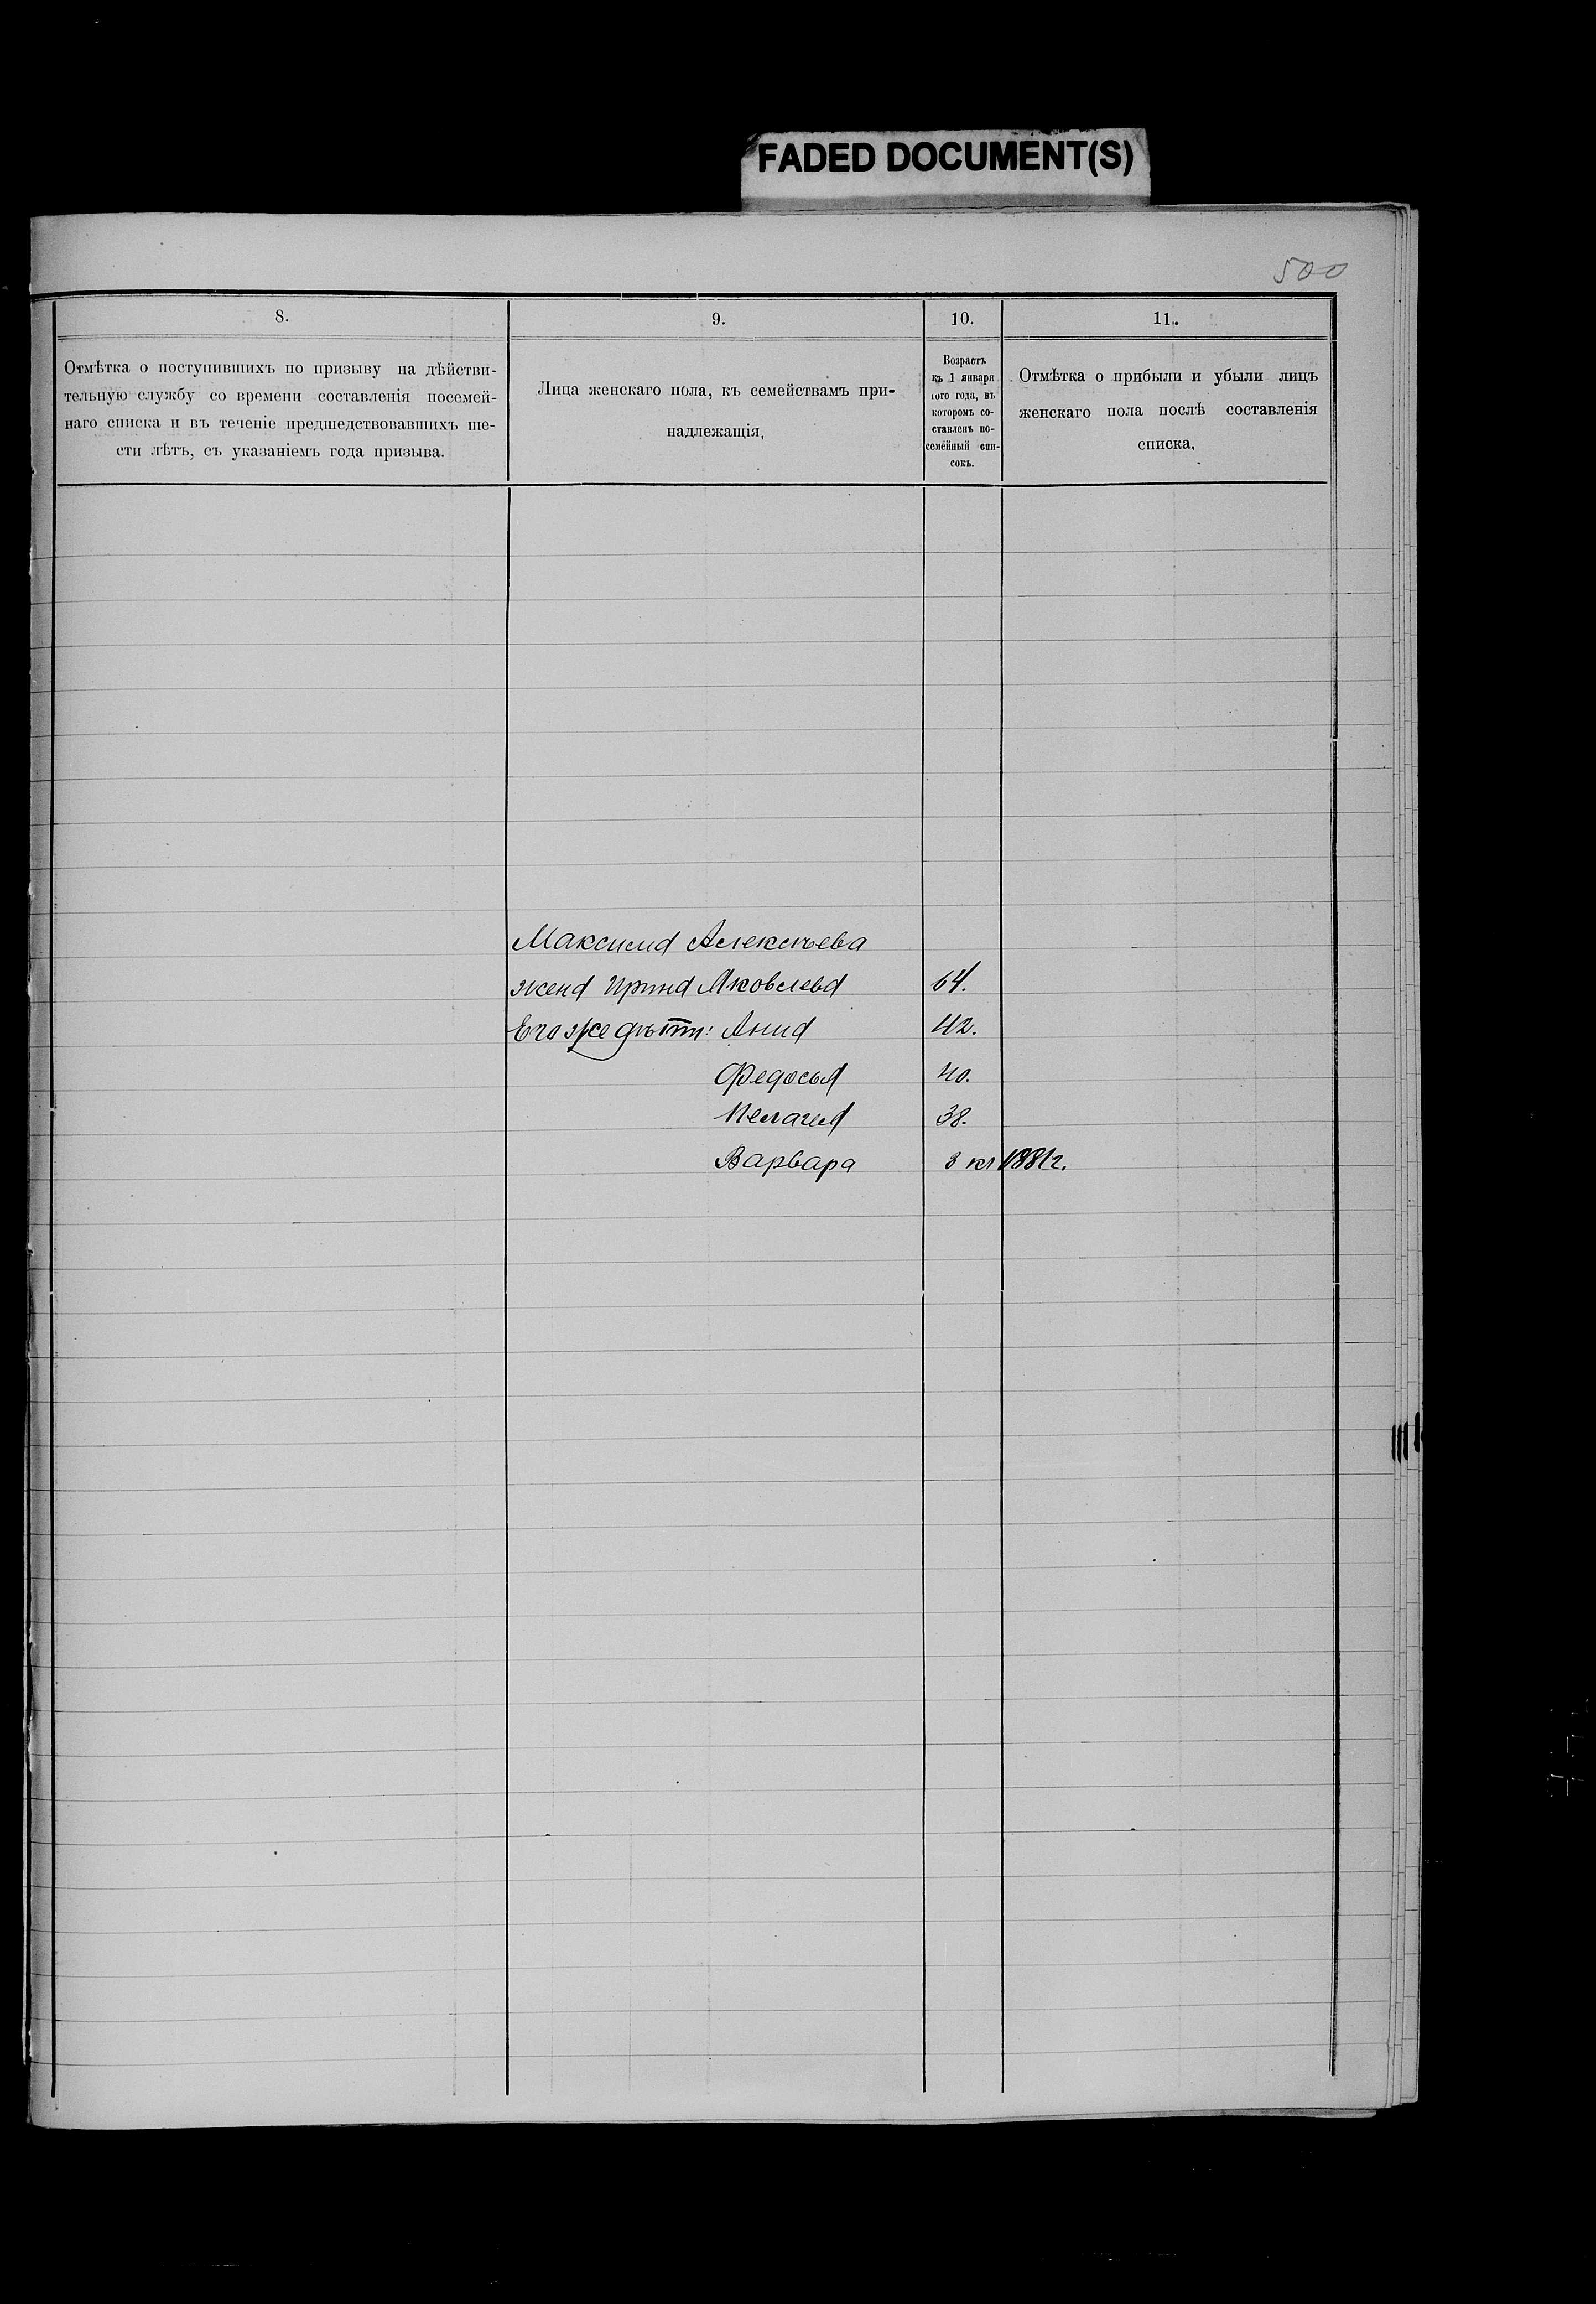 FADED DOCUMENT(S)
500
8.
9.
10.
11.
Отмѣтка о поступившихъ по призыву на дѣйстви-
тельную службу со времени составленія посемей-
наго списка и въ теченіе предшедствовавшихъ ше-
сти лѣтъ, съ указаніемъ года призыва.
Лица женскаго пола, къ семействамъ при-
надлежащія,
Возрастъ
къ 1 января
того года, въ
которомъ со-
ставленъ по-
семейный спи-
сокъ.
Отмѣтка о прибыли и убыли лицъ
женскаго пола послѣ составленія
списка.
Максима Алексѣева
жена Ирина Яковлева 64.
Его же дѣти: Анна 42.
Федосья 40.
Пелагея 38.
Варвара 3 1881г.